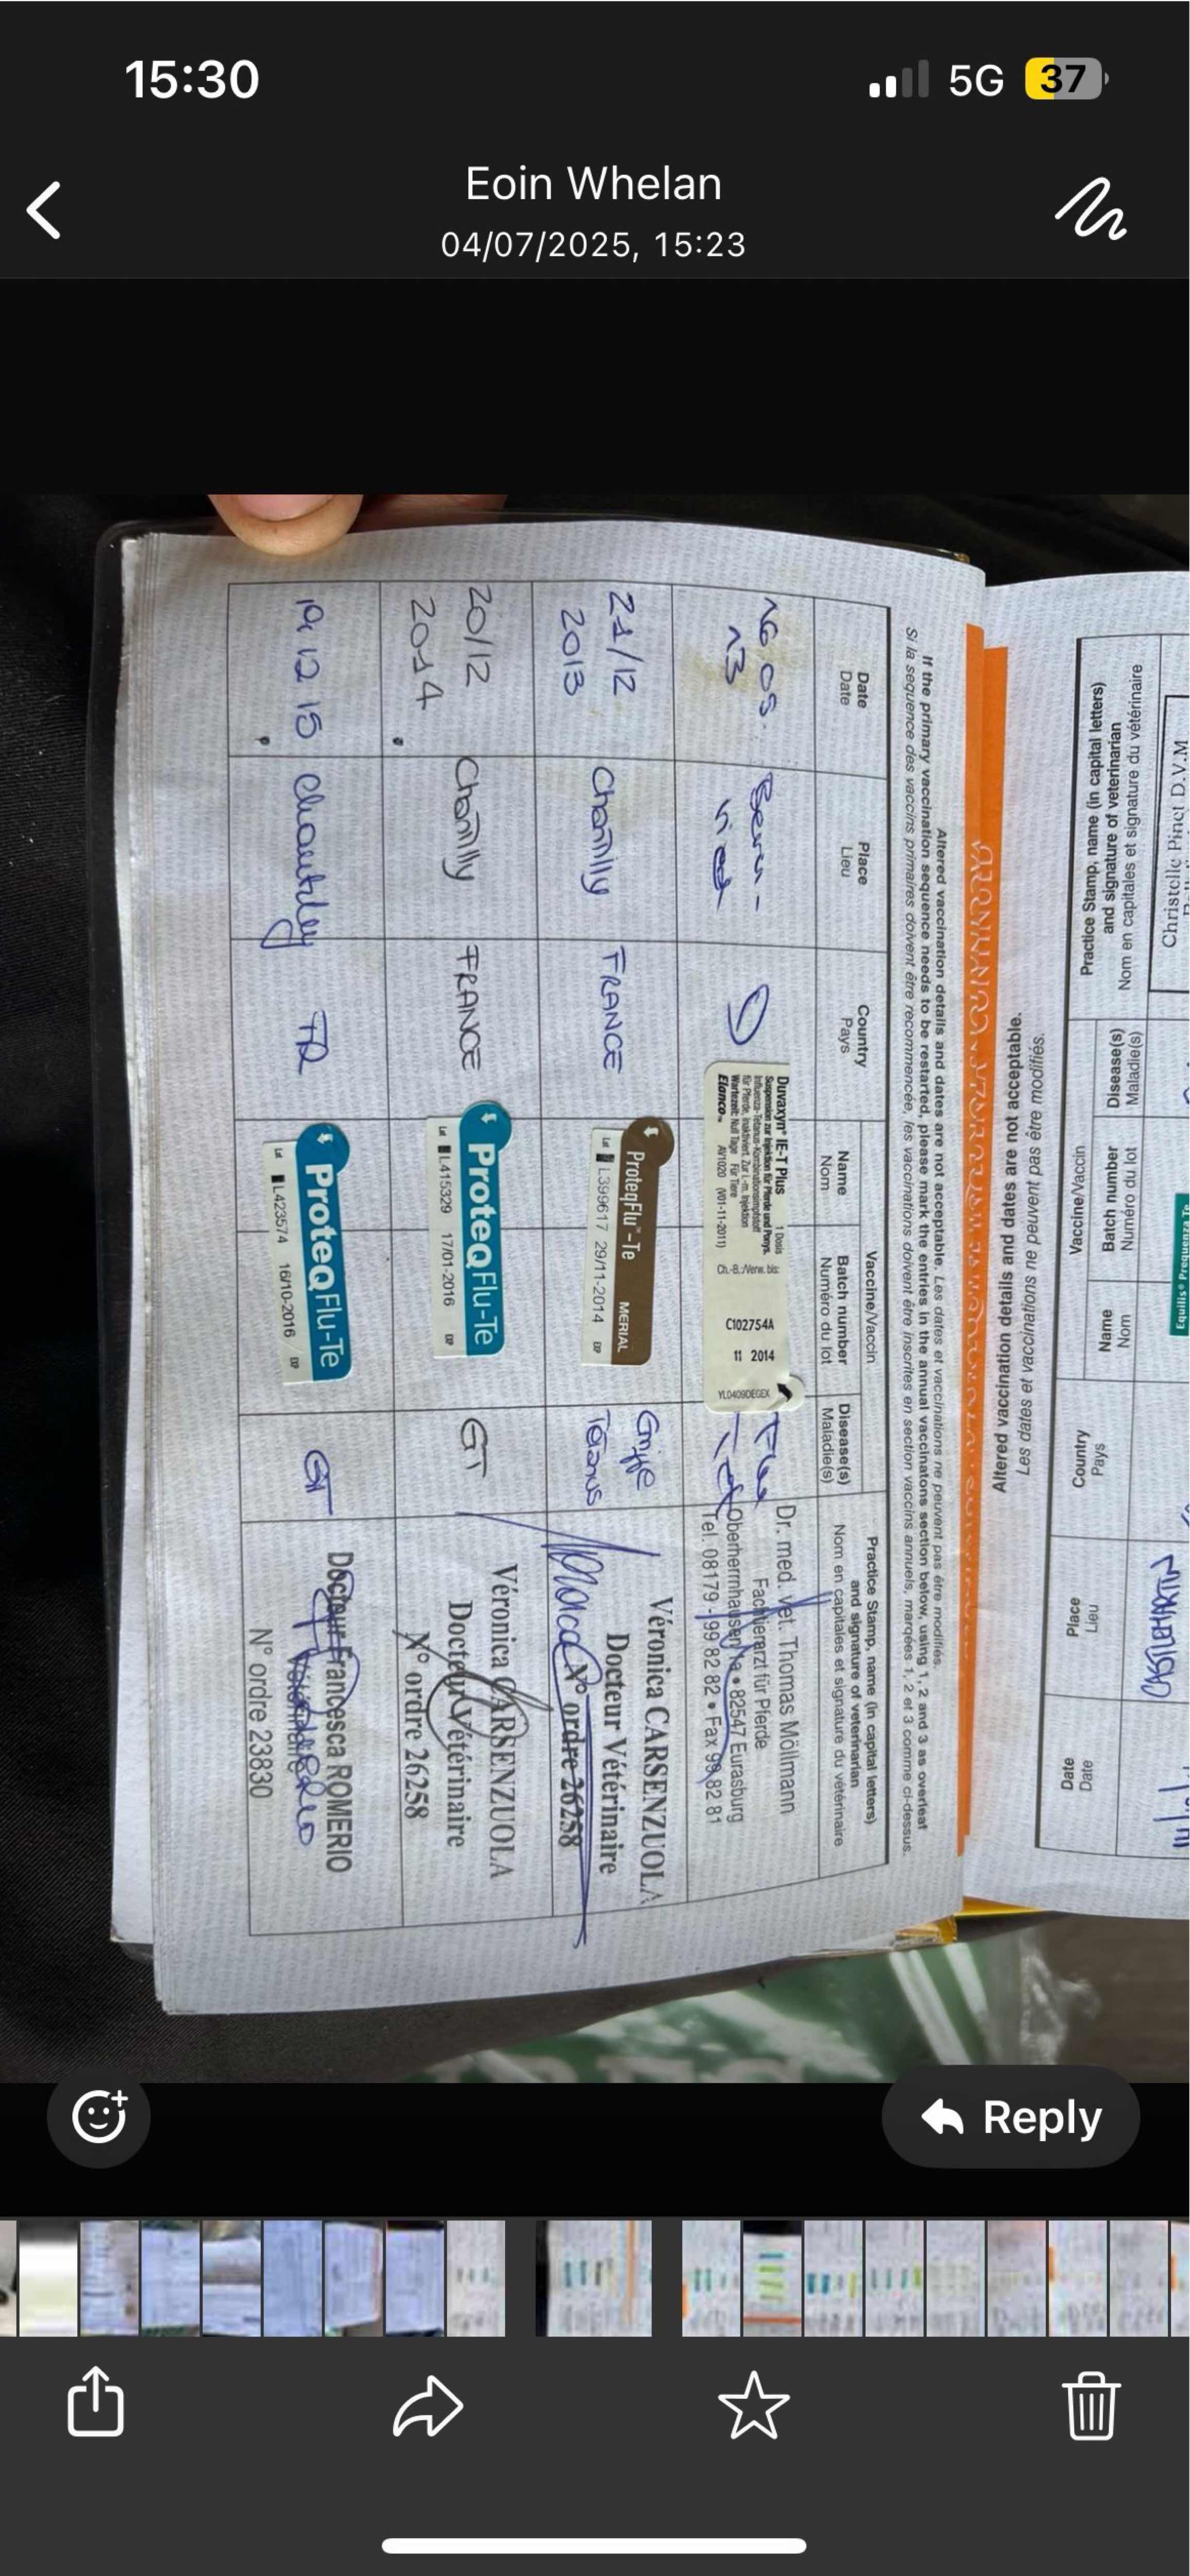 15:30
5G 37
Eoin Whelan
04/07/2025, 15:23
Altered vaccination details and dates are not acceptable.
Les dates et vaccinations ne peuvent pas être modifiés.
Altered vaccination details and dates are not acceptable. Les dates et vaccinations ne peuvent pas être modifiés.
If the primary vaccination sequence needs to be restarted, please mark the entries in the annual vaccinatons section below, using 1, 2 and 3 as overleaf
Si la sequence des vaccins primaires doivent être recommencée, les vaccinations doivent être inscrites en section vaccins annuels, marquées 1, 2 et 3 comme ci-dessus.
Date
Date
Place
Lieu
Country
Pays
Vaccine/Vaccin
Name
Nom
Batch number
Numéro du lot
Disease(s)
Maladie(s)
Practice Stamp, name (in capital letters)
and signature of veterinarian
Nom en capitales et signature du vétérinaire
16 05.
13
D
Duvaxyn® IE-T Plus 1 Dosis
Suspension zur Injektion für Pferde und Ponys.
Influenza-Tetanus-Kombinationsimpfstoff
für Pferde, inaktiviert. Zur i.-m. Injektion
Wartezeit: Null Tage Für Tiere
Elanco AV1020 (V01-11-2011)
Ch.-B.:/Verw. bis:
C102754A
11 2014
YL0409DEGEX
Flu
Tet
Dr. med. vet. Thomas Möllmann
Fachtierarzt für Pferde
Oberherrnhausen 1a • 82547 Eurasburg
Tel. 08179 - 99 82 82 • Fax 99 82 81
21/12
2013
Chantilly
FRANCE
ProteqFlu™-Te MERIAL
Lot L399617 29/11-2014 EXP
Grippe
Tétanos
Véronica CARSENZUOLA
Docteur Vétérinaire
N° ordre 26258
20/12
2014
Chantilly
FRANCE
ProteqFlu-Te
Lot L415329 17/01-2016 EXP
GT
Véronica CARSENZUOLA
Docteur Vétérinaire
N° ordre 26258
19 12 15
Chantilly
FR
ProteqFlu-Te
Lot L423574 16/10-2016 EXP
GT
Docteur Francesca ROMERIO
Vétérinaire
N° ordre 23830
Practice Stamp, name (in capital letters)
and signature of veterinarian
Nom en capitales et signature du vétérinaire
Disease(s)
Maladie(s)
Vaccine/Vaccin
Batch number
Numéro du lot
Name
Nom
Country
Pays
Place
Lieu
Date
Date
Christelle Pinct D.V.M
Equilis® Prequenza Te
Reply